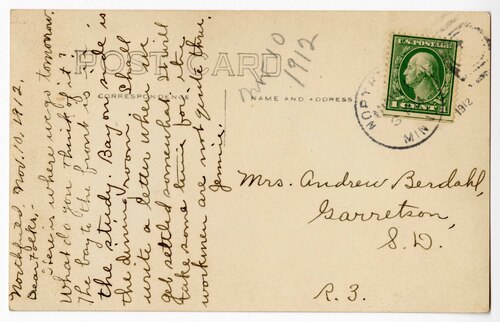 POST CARD
CORRESPONDENCE
NAME AND ADDRESS
Nov 10
1912
U.S. POSTAGE
1 CENT 1
NORTH
MIN
1912
Northfield, Nov. 10, 1912.
Dear Folks,-
Here is where we go tomorrow.
What do you think of it?
The bay to the front is in
the study. Bay on side is
the dining room. I shall
write a letter when we
get settled somewhat. It will
take some time for the
workmen are not quite thru.
Jennie.
Mrs. Andrew Berdahl,
Garretson,
S.D.
R. 3.